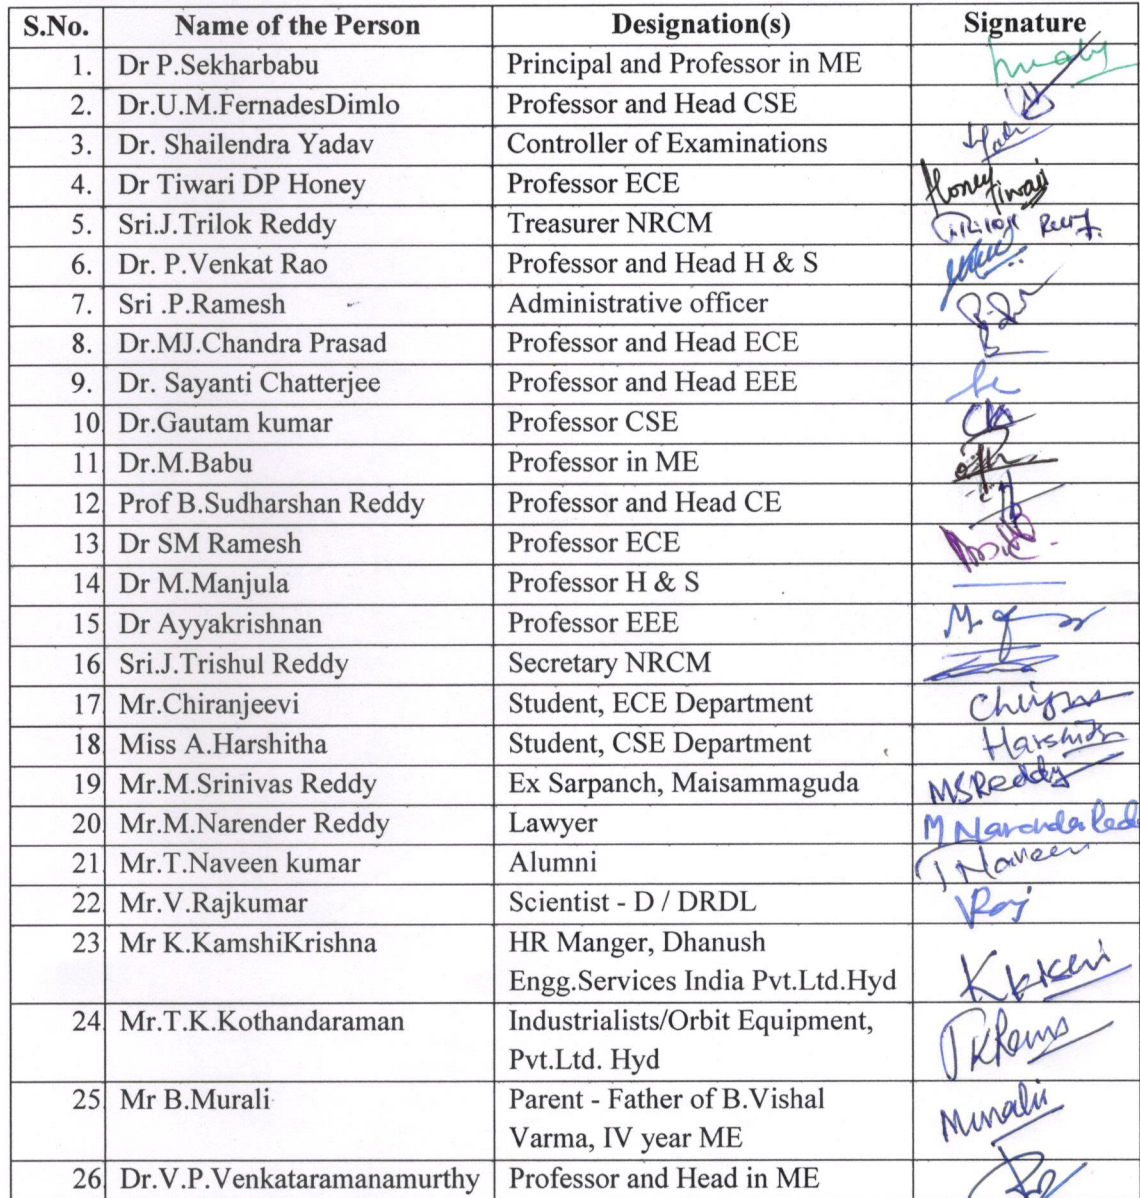 S.No. Name of the Person Designation(s) Signature
1. Dr P.Sekharbabu Principal and Professor in ME
2. Dr.U.M.FernadesDimlo Professor and Head CSE
3. Dr. Shailendra Yadav Controller of Examinations
4. Dr Tiwari DP Honey Professor ECE Honey Tiwari
5. Sri.J.Trilok Reddy Treasurer NRCM
6. Dr. P.Venkat Rao Professor and Head H & S
7. Sri .P.Ramesh Administrative officer
8. Dr.MJ.Chandra Prasad Professor and Head ECE
9. Dr. Sayanti Chatterjee Professor and Head EEE
10. Dr.Gautam kumar Professor CSE
11. Dr.M.Babu Professor in ME
12. Prof B.Sudharshan Reddy Professor and Head CE
13. Dr SM Ramesh Professor ECE
14. Dr M.Manjula Professor H & S
15. Dr Ayyakrishnan Professor EEE
16. Sri.J.Trishul Reddy Secretary NRCM
17. Mr.Chiranjeevi Student, ECE Department
18. Miss A.Harshitha Student, CSE Department
19. Mr.M.Srinivas Reddy Ex Sarpanch, Maisammaguda MSReddy
20. Mr.M.Narender Reddy Lawyer
21. Mr.T.Naveen kumar Alumni T Naveen
22. Mr.V.Rajkumar Scientist - D / DRDL VRaj
23. Mr K.KamshiKrishna HR Manger, Dhanush
Engg.Services India Pvt.Ltd.Hyd
24. Mr.T.K.Kothandaraman Industrialists/Orbit Equipment,
Pvt.Ltd. Hyd
25. Mr B.Murali Parent - Father of B.Vishal
Varma, IV year ME
26. Dr.V.P.Venkataramanamurthy Professor and Head in ME